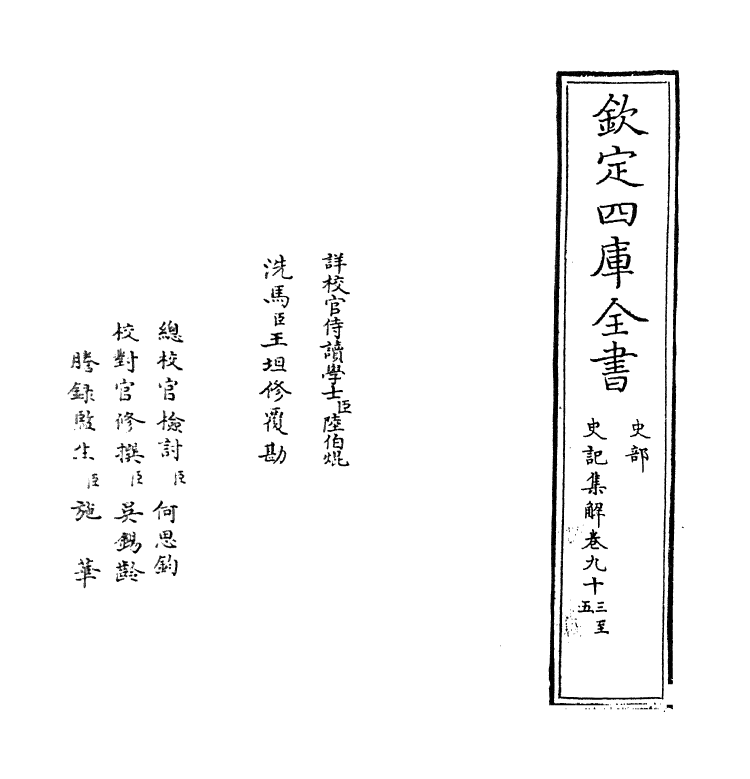 欽定四庫全書
史部
史記集解卷九十三至五
詳校官侍讀學士臣陸伯焜
洗馬臣王坦修覆勘
總校官檢討臣何思鈞
校對官修撰臣吳錫齡
謄錄監生臣施華